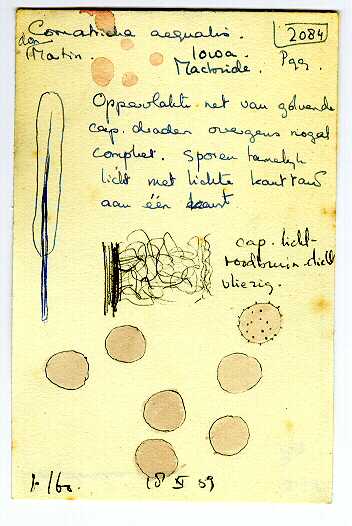 Comatricha aequalis. 2084
don Martin. Iowa. P99.
Macbride.
Oppervlakte net van golvende
cap. draden overigens nogal
compleet. Sporen tamelijk
licht met lichte
aan één kant
cap. licht-
roodbruin. dicht
vliezig.
18 XI 59